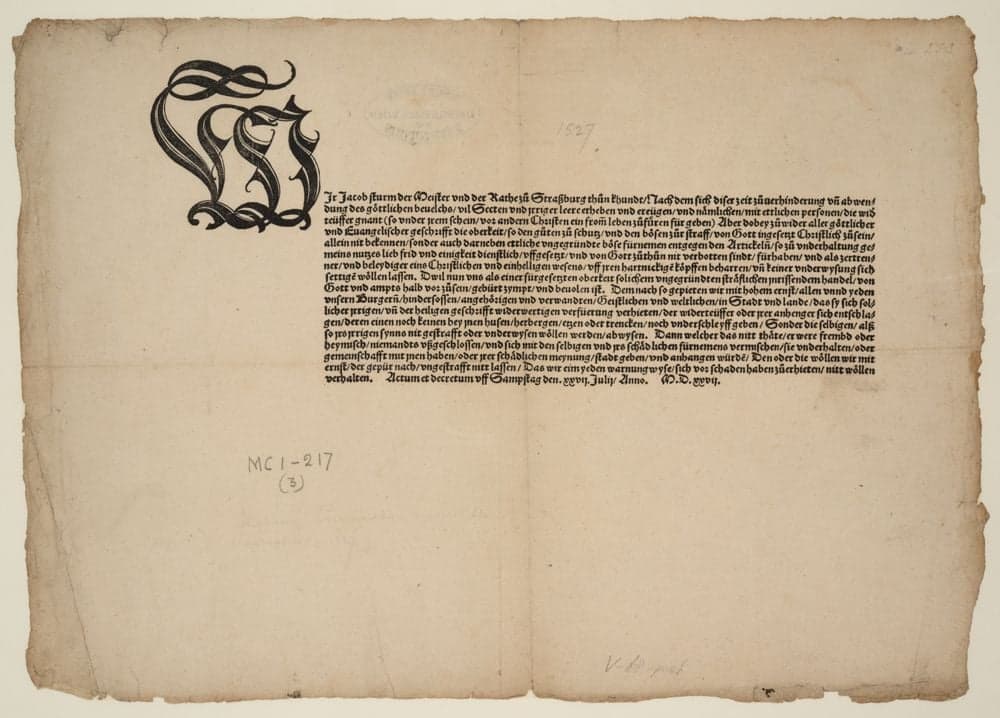 1527
WJr Jacob sturm der Meister vnd der Rathe zů Straßburg thůn khundt / Nach dem sich diser zeit zůuerhinderung vñ abwen-
dung des göttlichen beuelchs / vil Secten vnd jrriger leere erheben vnd ereügen / vnd nämlichen / mit ettlichen personen / die wid
teüffer gnant (so vnder jrem schein / vor andern Christen ein from̄ leben zůfüren für geben) Aber dobey zůwider aller göttlicher
vnd Euangelischer geschrifft die oberkeit / so den gůten zů schutz / vnd den bösen zůr straff / von Gott ingesetzt Christlich zůsein /
allein nit bekennen / sonder auch darneben ettliche vngegründte böse fürnemen entgegen den Artickeln̄ / so zů vnderhaltung ge-
meins nutzes lieb frid vnd einigkeit dienstlich / vffgesetzt / vnd von Gott zůthůn nit verbotten sindt / fürhaben / vnd als zertren-
ner / vnd beleydiger eins Christlichen vnd einhelligen wesens / vff jren hartmickigē köpffen beharren / vñ keiner vnderwysung sich
settigē wöllen lassen. Dwil nun vns als einer fürgesetzten oberkeit solichem vngegründten sträflichen jnrissendem handel / von
Gott vnd ampts halb vor zůsen / gebürt zympt / vnd beuolen ist. Dem nach so gepieten wir mit hohem ernst / allen vnnd yeden
vnsern Burgern̄ / hindersossen / angehörigen vnd verwandten / Geistlichen vnd weltlichen / in Stadt vnd lande / das sy sich sol-
licher jrrigen / vñ der heiligen geschrifft widerwertigen verfüerung verhieten / der widerteüffer oder jrer anhenger sich entschla-
gen / deren einen noch keinen bey jnen husen / herbergen / etzen oder trencken / noch vnderschleyff geben / Sonder die selbigen / alß
so jrs jrrigen synns nit gestrafft oder vnderwysen wöllen werden / abwysen. Dann welcher das nitt thäte / er were frembd oder
heymisch / niemandts vßgeschlossen / vnd sich mit den selbigen vnd jrs schädlichen fürnemens vermischen / sie vnderhalten / oder
gemeinschafft mit jnen haben / oder jrer schädlichen meynung / stadt geben / vnd anhangen würdē / Den oder die wöllen wir mit
ernst / der gepür nach / vngestrafft nitt lassen / Das wir eim yeden warnung wyse / sich vor schaden haben zůerhieten / nitt wöllen
verhalten. Actum et decretum vff Sampstag den. xxvij. Julij / Anno. M. D. xxvij.
MC1-217
(3)